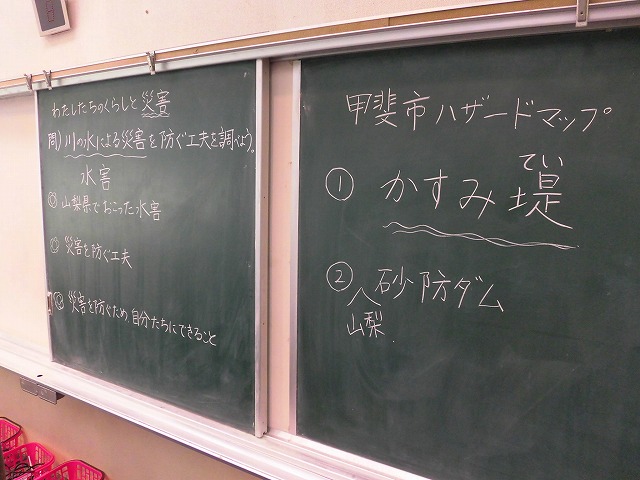 わたしたちのくらしと災害
問）川の水による災害を防ぐ工夫を調べよう。
水害
山梨県でおこった水害
災害を防ぐ工夫
災害を防ぐため、自分たちにできること
甲斐市ハザードマップ
① かすみ堤
てい
② 砂防ダム
山梨